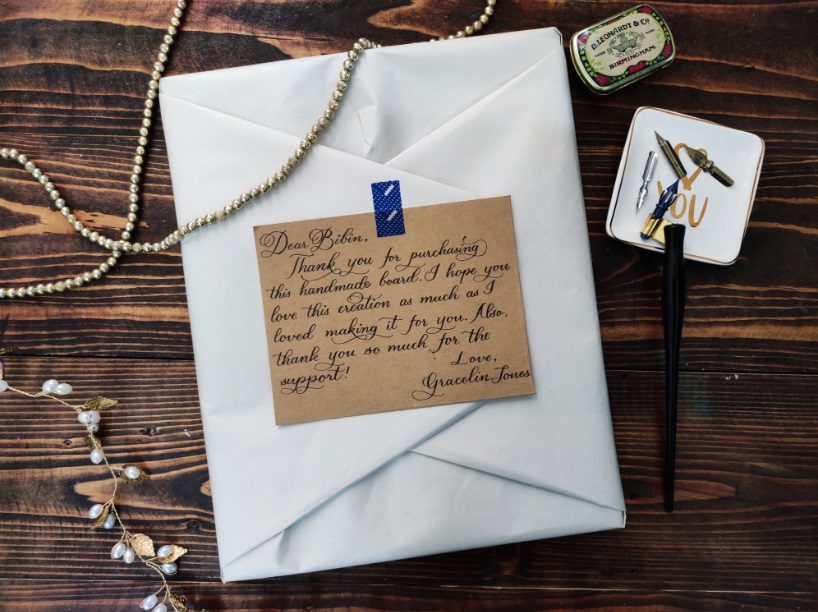 D. LEONARDT & Co.
BIRMINGHAM
YOU
Dear Bibin,
Thank you for purchasing
this handmade board. I hope you
love this creation as much as I
loved making it for you. Also,
thank you so much for the
support!
Love,
Gracelin Jones